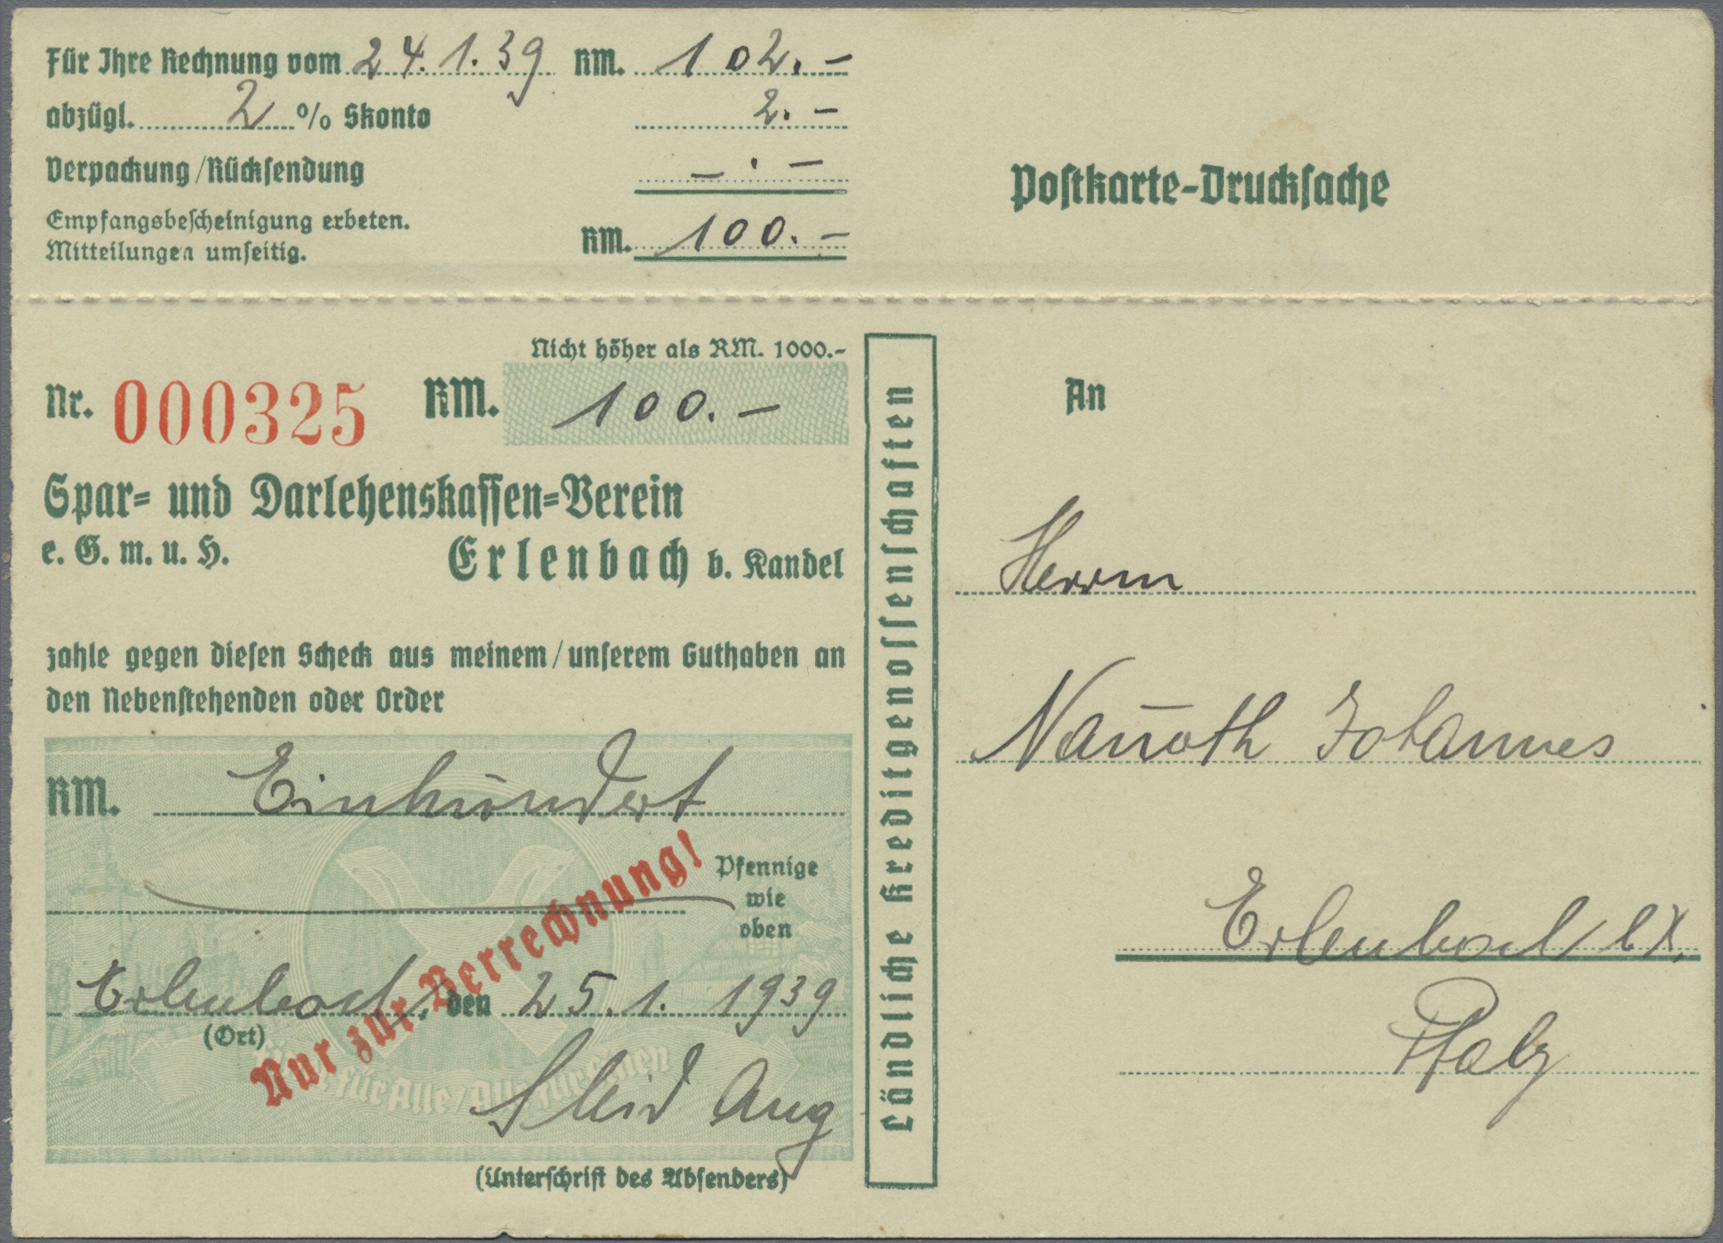 Für Ihre Rechnung vom 24.1.39 RM. 102.-
abzügl. 2 % Skonto 2.-
Verpackung/Rücksendung -.-
Empfangsbescheinigung erbeten.
Mitteilungen umseitig.
RM. 100.-
Postkarte-Drucksache
Nicht höher als RM. 1000.-
Nr. 000325 RM. 100.-
Spar- und Darlehenskassen-Verein
e. G. m. u. H. Erlenbach b. Kandel
zahle gegen diesen Scheck aus meinem/unserem Guthaben an
den Nebenstehenden oder Order
RM. Einhundert
Pfennige
wie
oben
Erlenbach, den 25.1.1939
(Ort)
Nur zur Verrechnung!
für Alle/Alle für Einen
Aug
(Unterschrift des Absenders)
Ländliche Kreditgenossenschaften
An
Herrn
Nauroth Johannes
Erlenbach b/K.
Pfalz